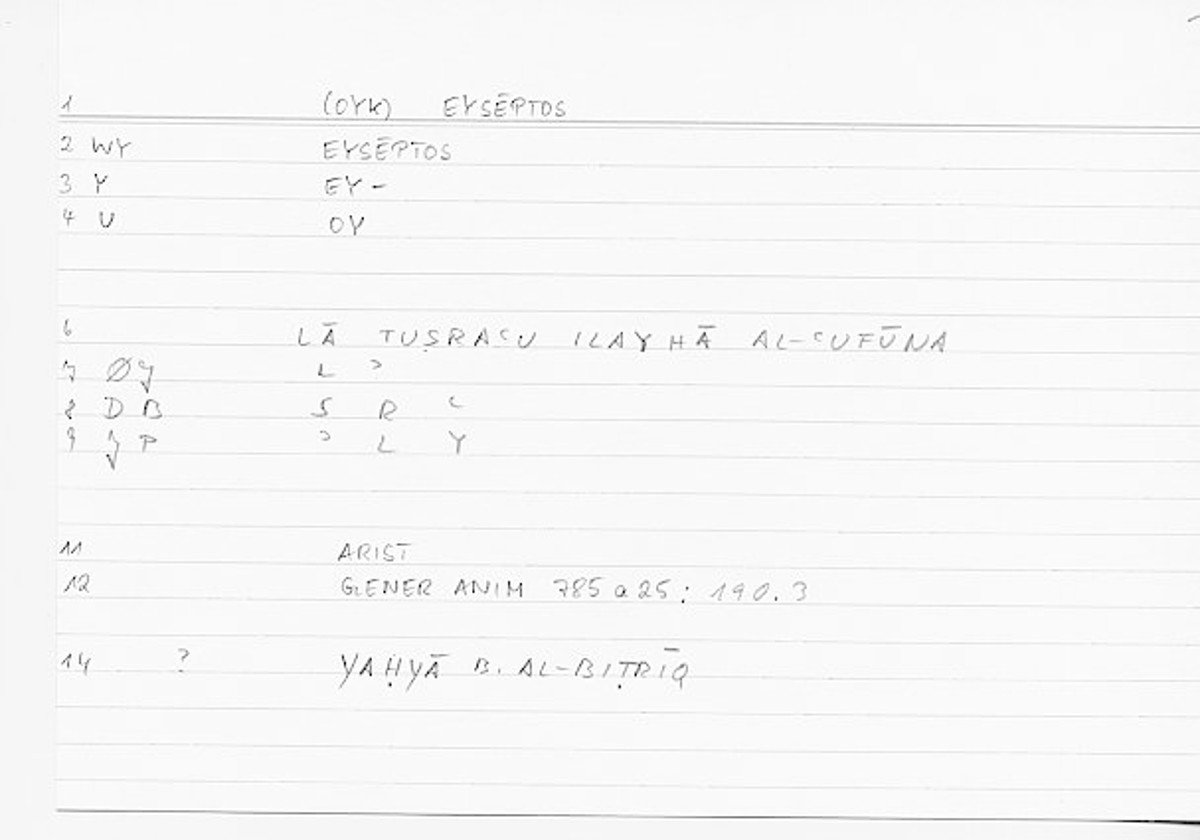 1 (OYK) EYSĒPTOS
2 WY EYSĒPTOS
3 Y EY-
4 U OY
6 LĀ TUṢRAʿU ILAYHĀ AL-ʿUFŪNA
7 ØJ L ʾ
8 DB S R ʿ
9 JP ʾ L Y
11 ARIST
12 GENER ANIM 785 a 25 : 190.3
14 ? YAḤYĀ B. AL-BIṬRĪQ